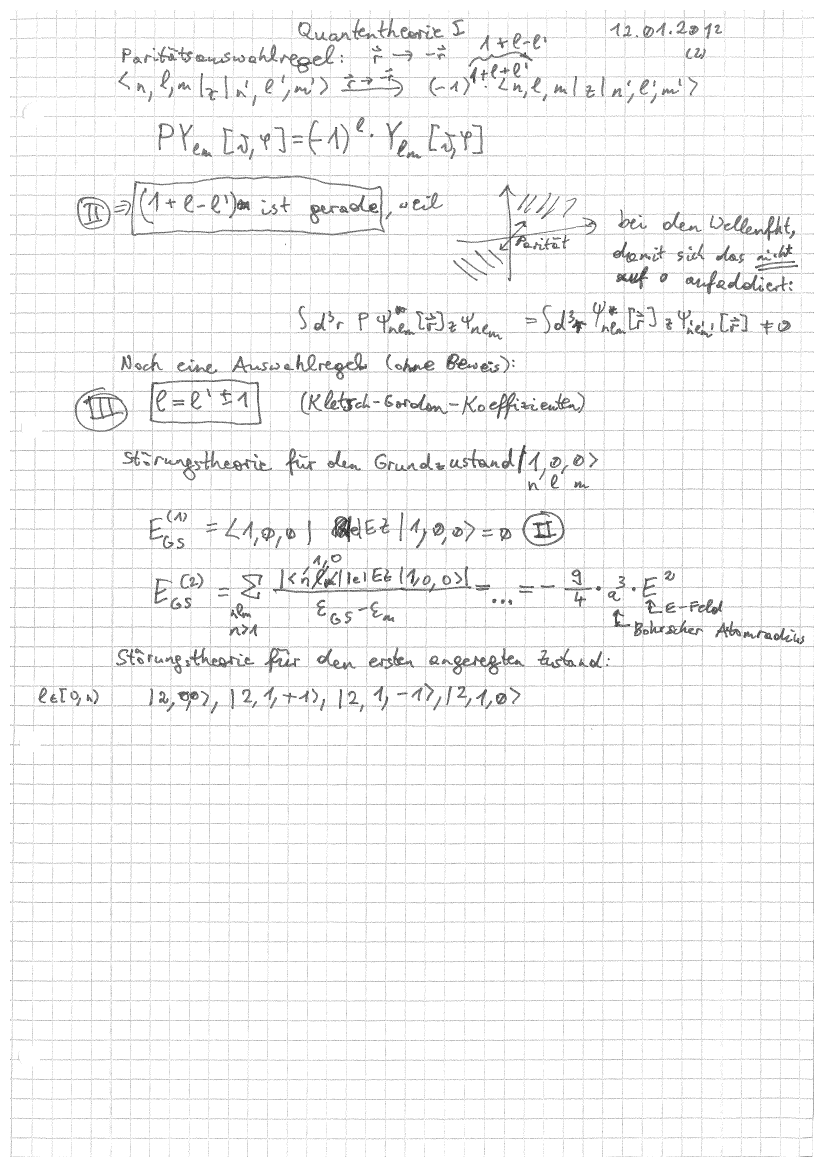 Quantentheorie I 12.01.2012
(2)
Paritätsauswahlregel: r⃗ → -r⃗ 1+l-l'
<n, l, m|z|n', l', m'> r⃗→-r⃗ (-1)^(1+l+l') · <n, l, m|z|n', l', m'>
PY_lm [ϑ,φ] = (-1)^l · Y_lm [ϑ,φ]
II ⇒ (1+l-l') ist gerade, weil
Parität
bei den Wellenfkt,
damit sich das nicht
auf 0 aufaddiert:
∫d³r P ψ*_nlm [r⃗] z ψ_nlm = ∫d³r ψ*_nlm [r⃗] z ψ_n'l'm' [r⃗] ≠ 0
Noch eine Auswahlregel (ohne Beweis):
III l = l' ± 1 (Kletsch-Gordon-Koeffizienten)
Störungstheorie für den Grundzustand |1,0,0>
n l m
E_GS^(1) = <1,0,0| |e|EZ |1,0,0> = 0 II
1,0
E_GS^(2) = Σ_(nlm n>1) |<n l m| |e|EZ |1,0,0>| / (ε_GS - ε_m) = ... = - 9/4 · a³ · E²
E-Feld
Bohrscher Atomradius
Störungstheorie für den ersten angeregten Zustand:
l∈[0,n) |2,0,0>, |2,1,+1>, |2,1,-1>, |2,1,0>